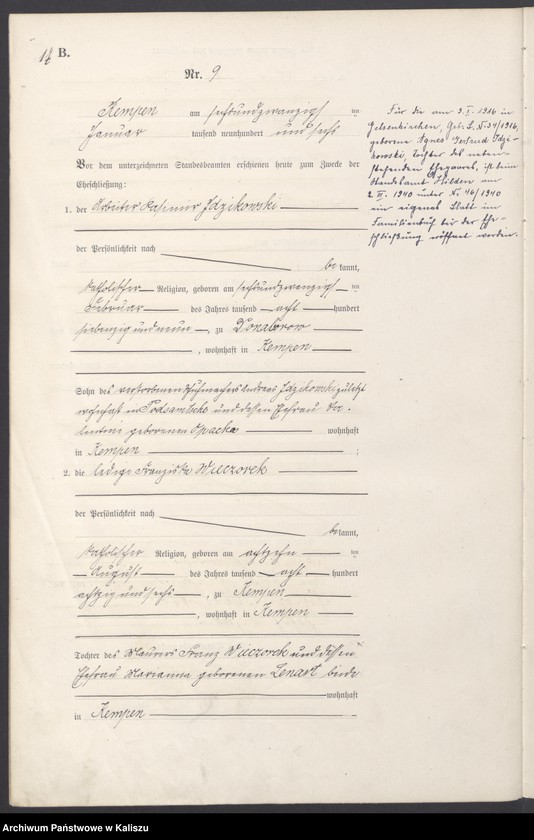 B.
Nr. 9
Kempen am sechsundzwanzigs ten
Januar tausend neunhundert und sechs
Vor dem unterzeichneten Standesbeamten erschienen heute zum Zwecke der
Eheschließung:
1. der Arbeiter Kasimir Idzikowski
der Persönlichkeit nach
be kannt,
katholischer Religion, geboren am sechsundzwanzigs ten
Februar des Jahres tausend acht hundert
siebenzig und neun, zu Donaborow
, wohnhaft in Kempen
Sohn des verstorbenen Schuhmachers Andreas Idzikowski zuletzt
wohnhaft in und dessen Ehefrau Va-
lentine geborenen Opacka wohnhaft
in Kempen ;
2. die ledige Franziska Wieczorek
der Persönlichkeit nach
be kannt,
katholischer Religion, geboren am achtzehn ten
August des Jahres tausend acht hundert
achtzig und sechs, zu Kempen
, wohnhaft in Kempen
Tochter des Maurers Franz Wieczorek und dessen
Ehefrau Marianna geborenen Lenart beide
wohnhaft
in Kempen
Für die am 3. I. 1916 in
Gelsenkirchen, Geb. B. N. 34/1916,
geborene Agnes Gertrud Idzi-
kowski, Tochter des neben-
stehenden Ehepaares, ist beim
Standesamt Hilden am
2. 1940 unter Nr. 46/1940
ein eigenes Blatt im
Familienbuch bei der Ehe-
schließung eröffnet worden.
Archiwum Państwowe w Kaliszu